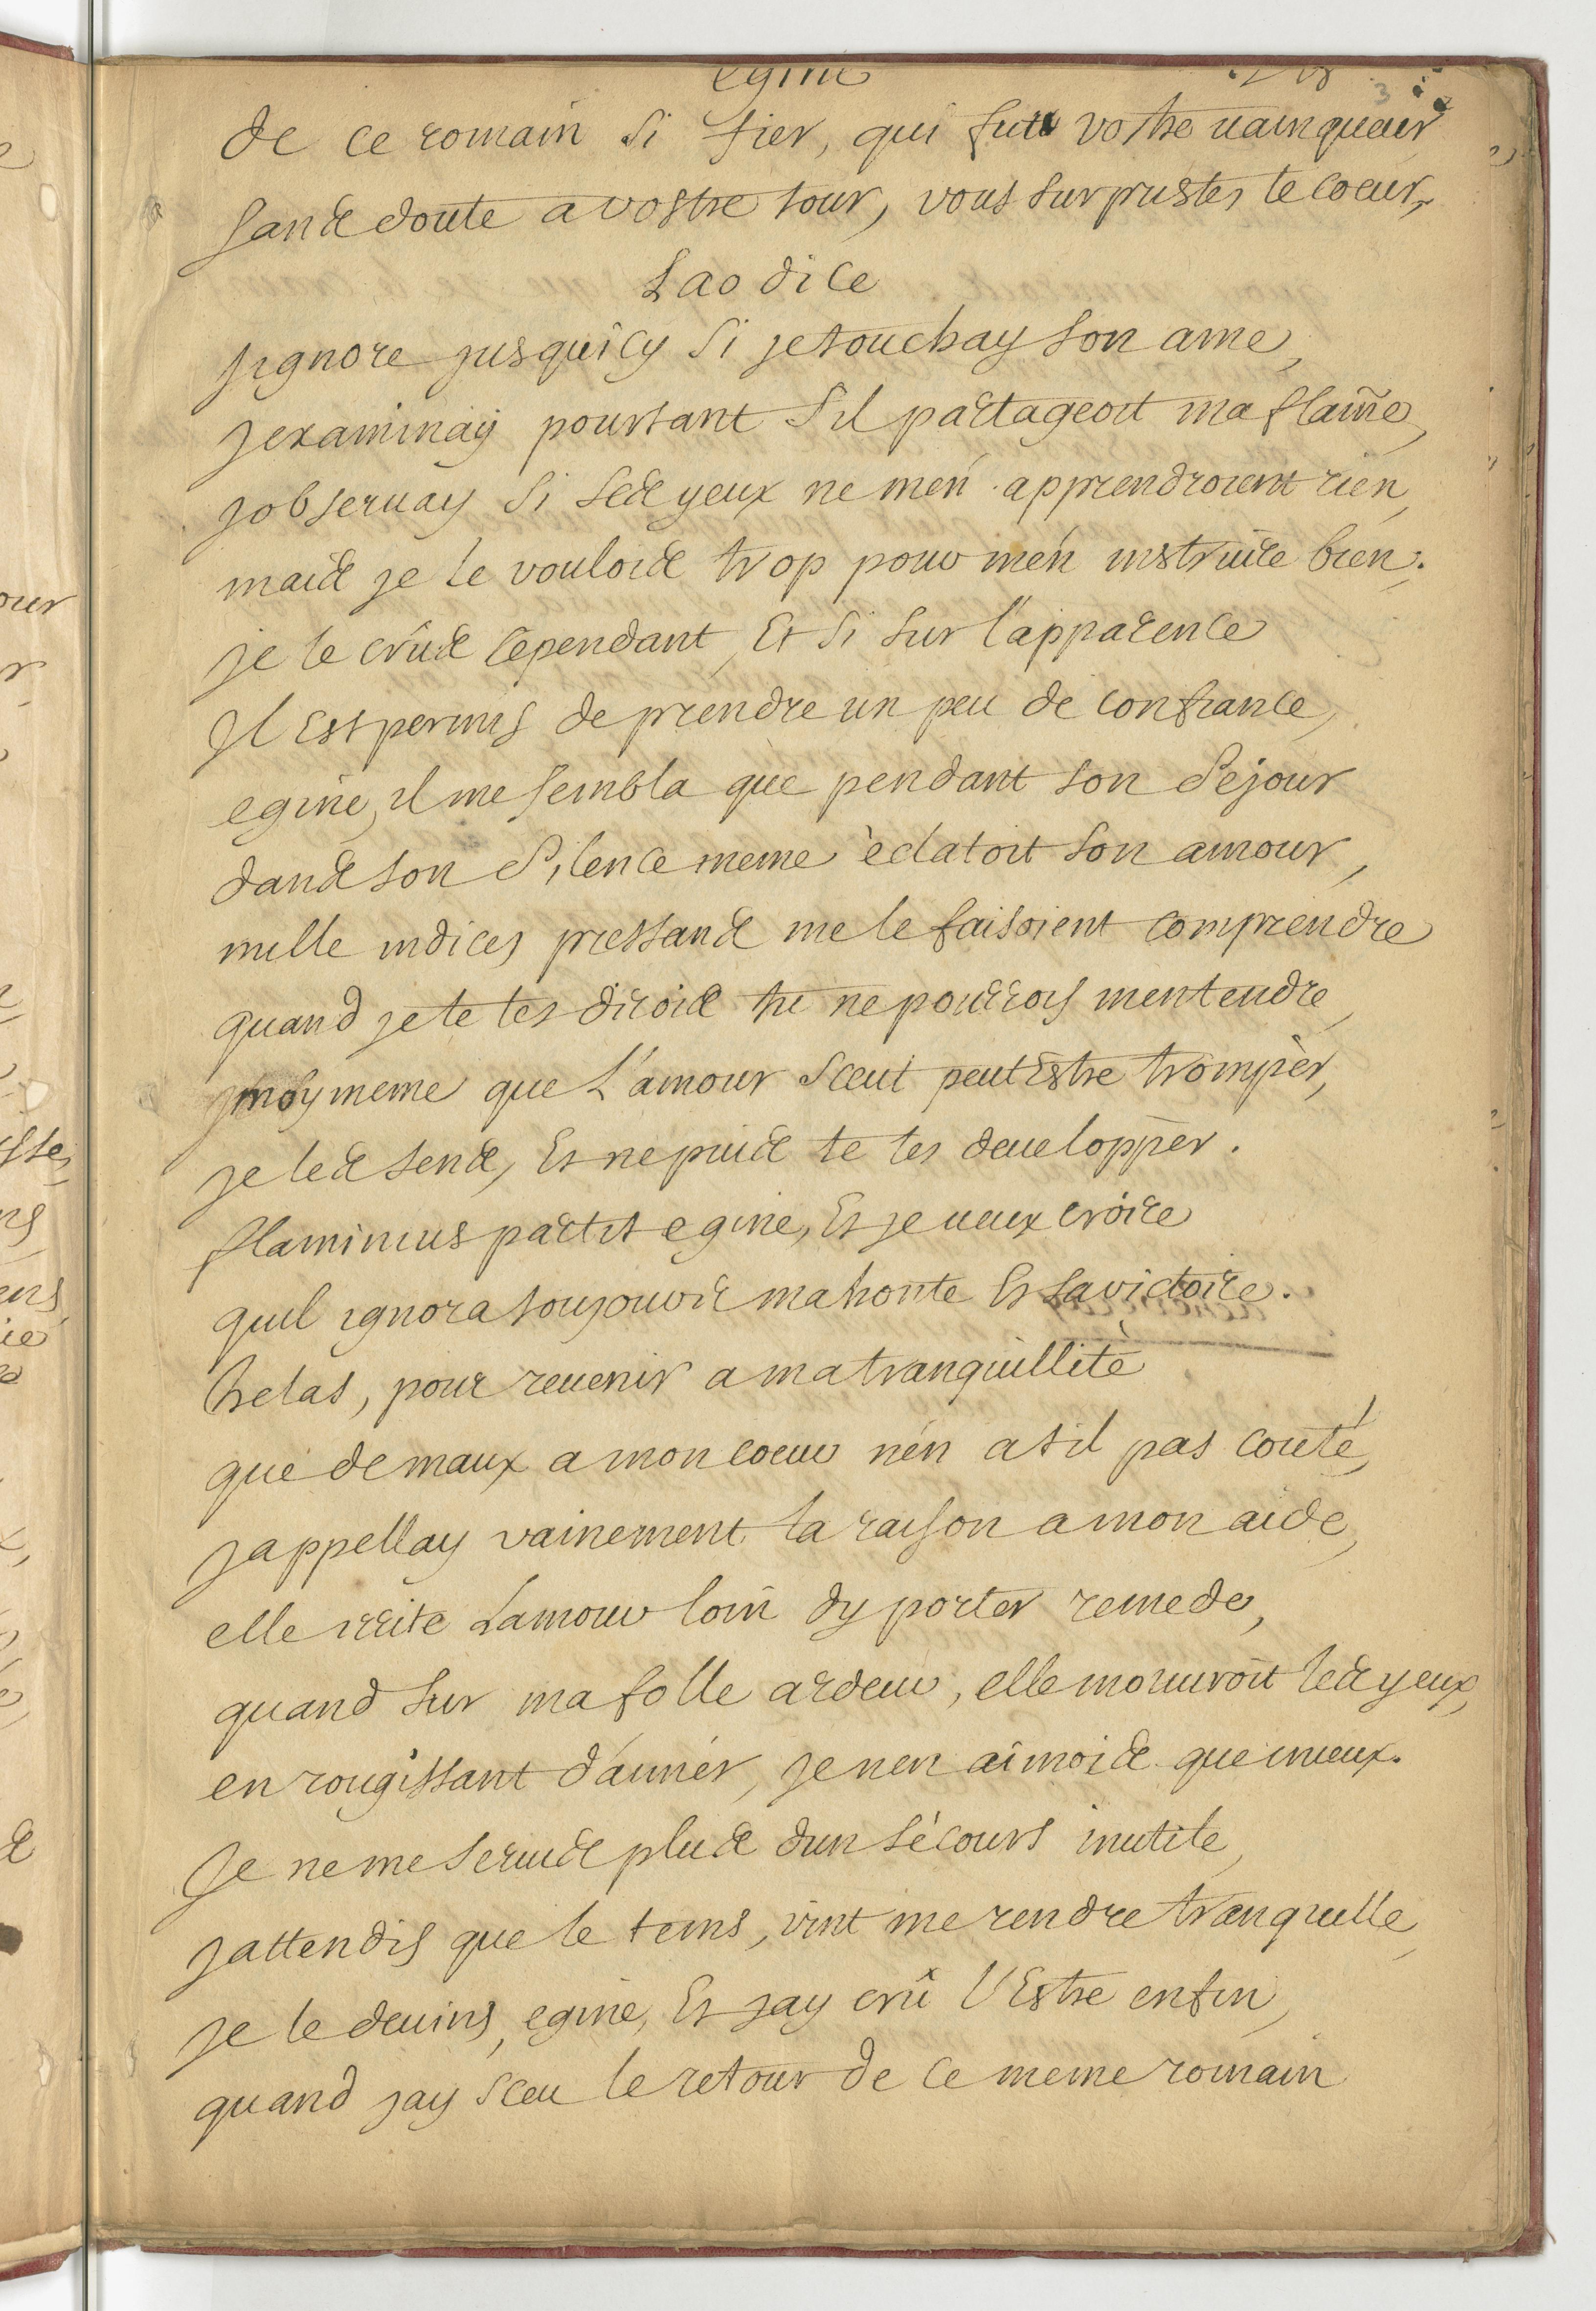 egine
3
de ce romain si fier, qui fut votre uainqueur
sans doute a vostre tour, vous surpristes le coeur,
Laodice
jignore jusquicy si je touchay son ame,
jexaminay pourtant sil partageoit ma flame,
jobseruay si ses yeux ne m'en apprendroient rien,
mais je le voulois trop pour m'en instruire bien.
je le crûs cependant, Et si sur l'apparence
Il Est permis de prendre un peu de confiance,
egine, il me sembla que pendant son séjour
dans son silence meme èclatoit son amour,
mille indices pressans me le faisoient comprendre
quand je te les dirois tu ne pourrois mentendre,
moy meme que L'amour sceut peut Estre tromper,
je les sens, Et ne puis te les deuelopper.
flaminius partit egine, Et je ueux croire
quil ignora toujours ma honte Et sa victoire.
helas, pour reuenir a ma tranquillité
que de maux a mon coeur n'en at il pas couté,
jappellay vainement la raison a mon aide,
elle irrite Lamour loin dy porter remede,
quand sur ma folle ardeur, elle mouuroit les yeux,
en rougissant d'aimer, je nen aimois que mieux.
Je ne me seruis plus dun sécours inutile,
jattendis que le tems, vint me rendre tranquille,
je le deuins, egine, Et jay crû l'Estre enfin,
quand jay sceu le retour de ce meme romain